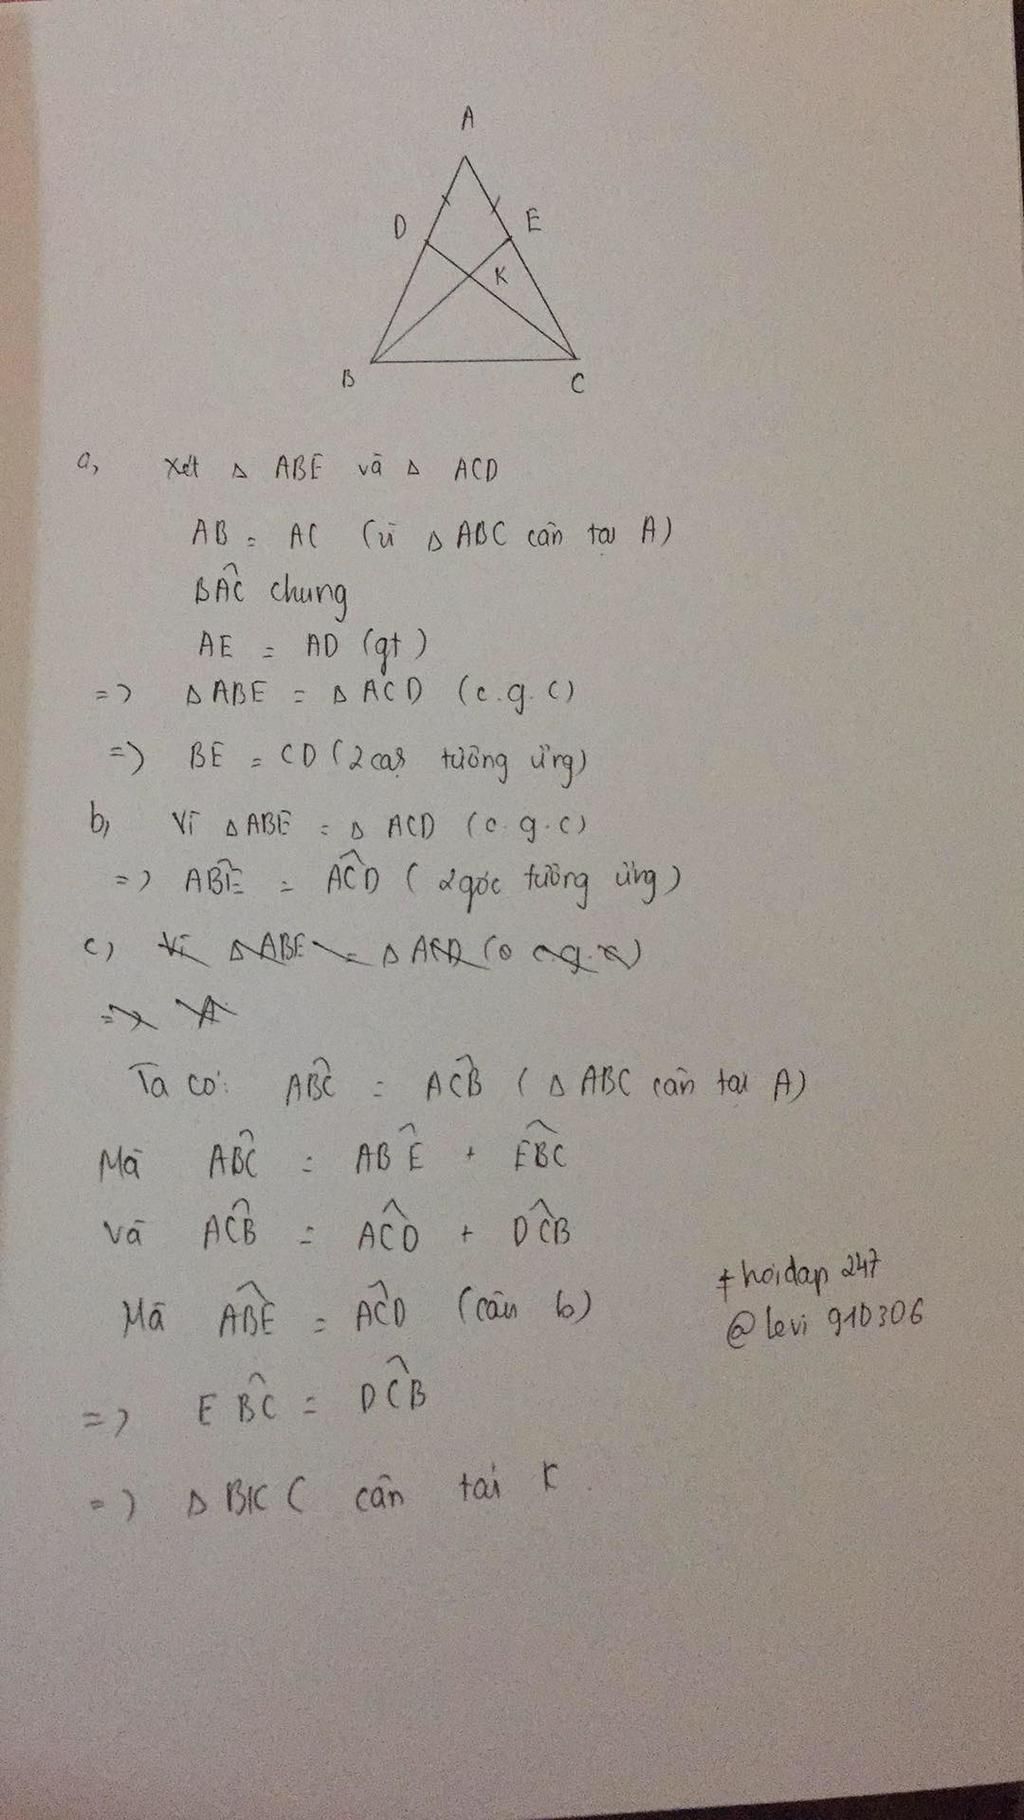 A
D
E
K
B
C
a, Xét Δ ABE và Δ ACD
AB = AC (vì Δ ABC cân tại A)
BÂC chung
AE = AD (gt)
=> Δ ABE = Δ ACD (c.g.c)
=> BE = CD (2 cạh tương ứng)
b, Vì Δ ABE = Δ ACD (c.g.c)
=> AB̂E = AĈD (2 góc tương ứng)
c) Vì Δ ABE = Δ ACD
=>
Ta có: AB̂C = AĈB (Δ ABC cân tại A)
Mà AB̂C = AB̂E + EB̂C
Và AĈB = AĈD + DĈB
Mà AB̂E = AĈD (câu b)
=> EB̂C = DĈB
=> Δ BKC cân tại K.
#hoidap 247
@levi 910306